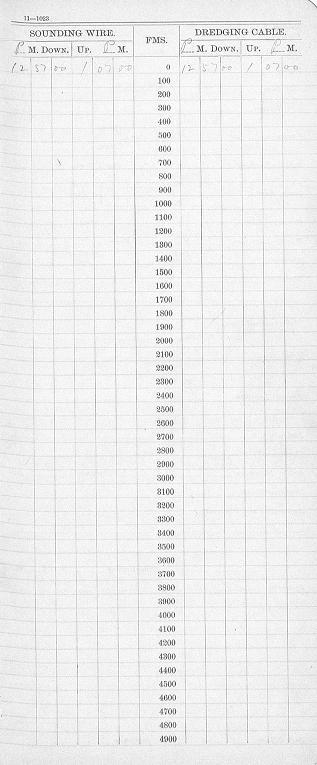 11—1023
SOUNDING WIRE. FMS. DREDGING CABLE.
P. M. DOWN. UP. P. M. P. M. DOWN. UP. P. M.
12 57 00 1 07 00 0 12 57 00 1 07 00
100
200
300
400
500
600
700
800
900
1000
1100
1200
1300
1400
1500
1600
1700
1800
1900
2000
2100
2200
2300
2400
2500
2600
2700
2800
2900
3000
3100
3200
3300
3400
3500
3600
3700
3800
3900
4000
4100
4200
4300
4400
4500
4600
4700
4800
4900